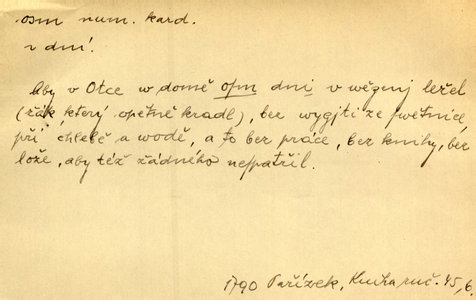 osm num. kard.
v dní.
Aby v Otce w domě osm dni v wězenj ležel
(žák který opětně kradl), bez wygjti ze swětnice
při chlebě a wodě, a to bez práce, bez knihy, bez
lože, aby též žádného nespatřil.
1790 Pařízek, Kniha ruč. 45,6.